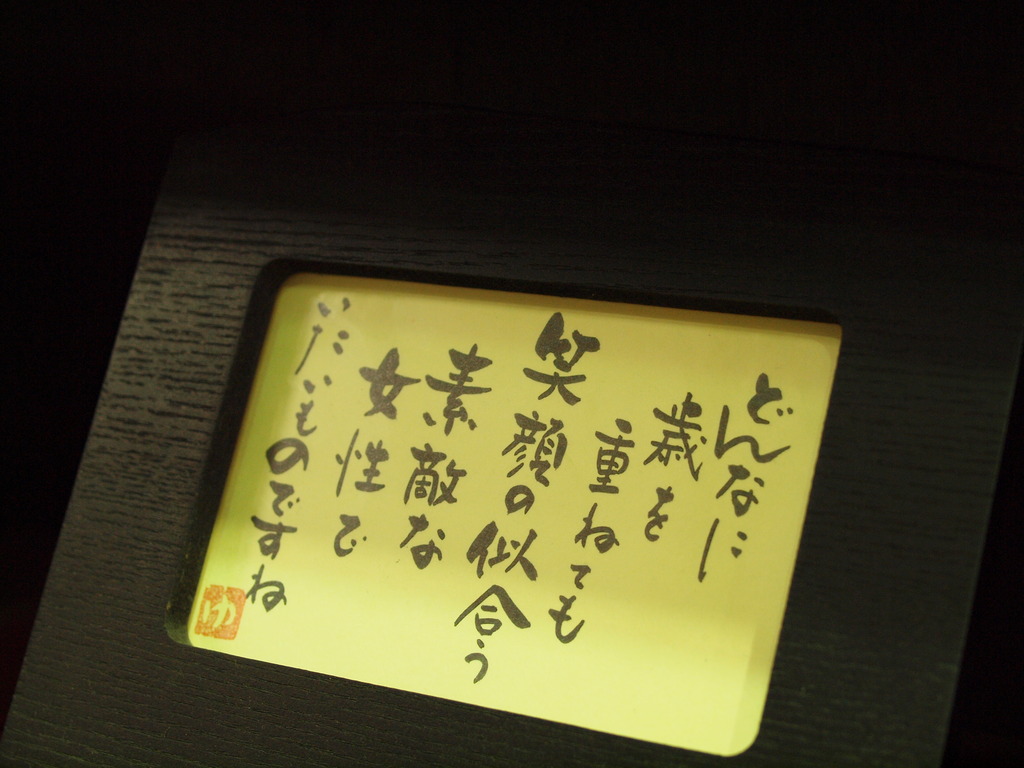 どんなに
歳を
重ねても
笑顔の似合う
素敵な
女性で
いたいものですね
ゆ